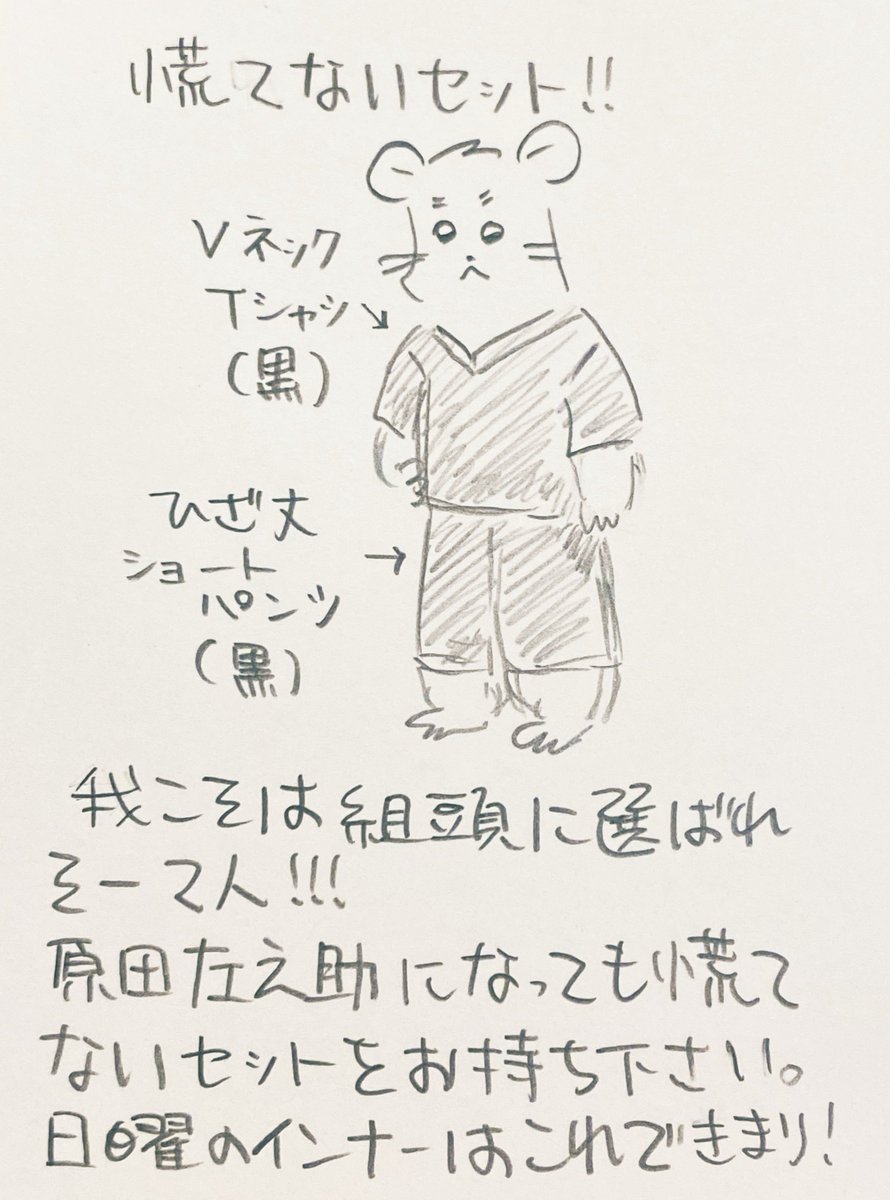 慌てないセット!!
Vネック
Tシャツ
(黒)
ひざ丈
ショート
パンツ
(黒)
我こそは組頭に選ばれ
そーて人!!!
原田左之助になっても慌て
ないセットをお持ち下さい。
日曜のインナーはこれできまり!